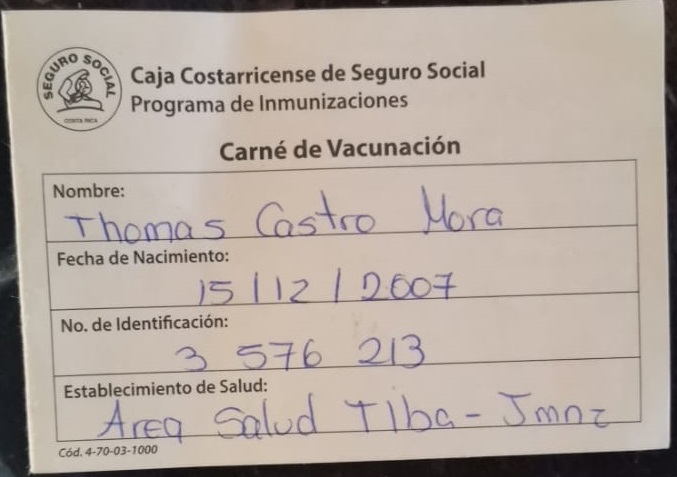 SEGURO SOCIAL
COSTA RICA
Caja Costarricense de Seguro Social
Programa de Inmunizaciones
Carné de Vacunación
Nombre:
Thomas Castro Mora
Fecha de Nacimiento:
15/12/2007
No. de Identificación:
3 576 213
Establecimiento de Salud:
Area Salud TIba - Jmnz
Cód. 4-70-03-1000